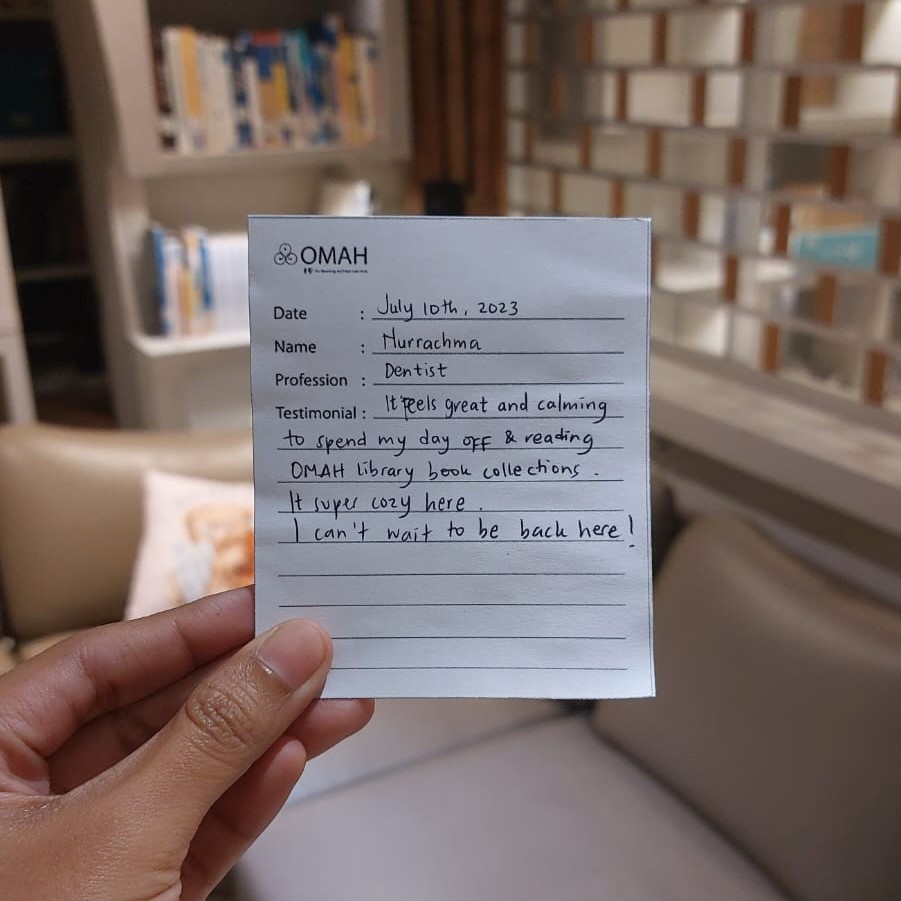 OMAH
Date : July 10th, 2023
Name : Nurrachma
Profession : Dentist
Testimonial : It feels great and calming
to spend my day off & reading
OMAH library book collections.
It super cozy here.
I can't wait to be back here!